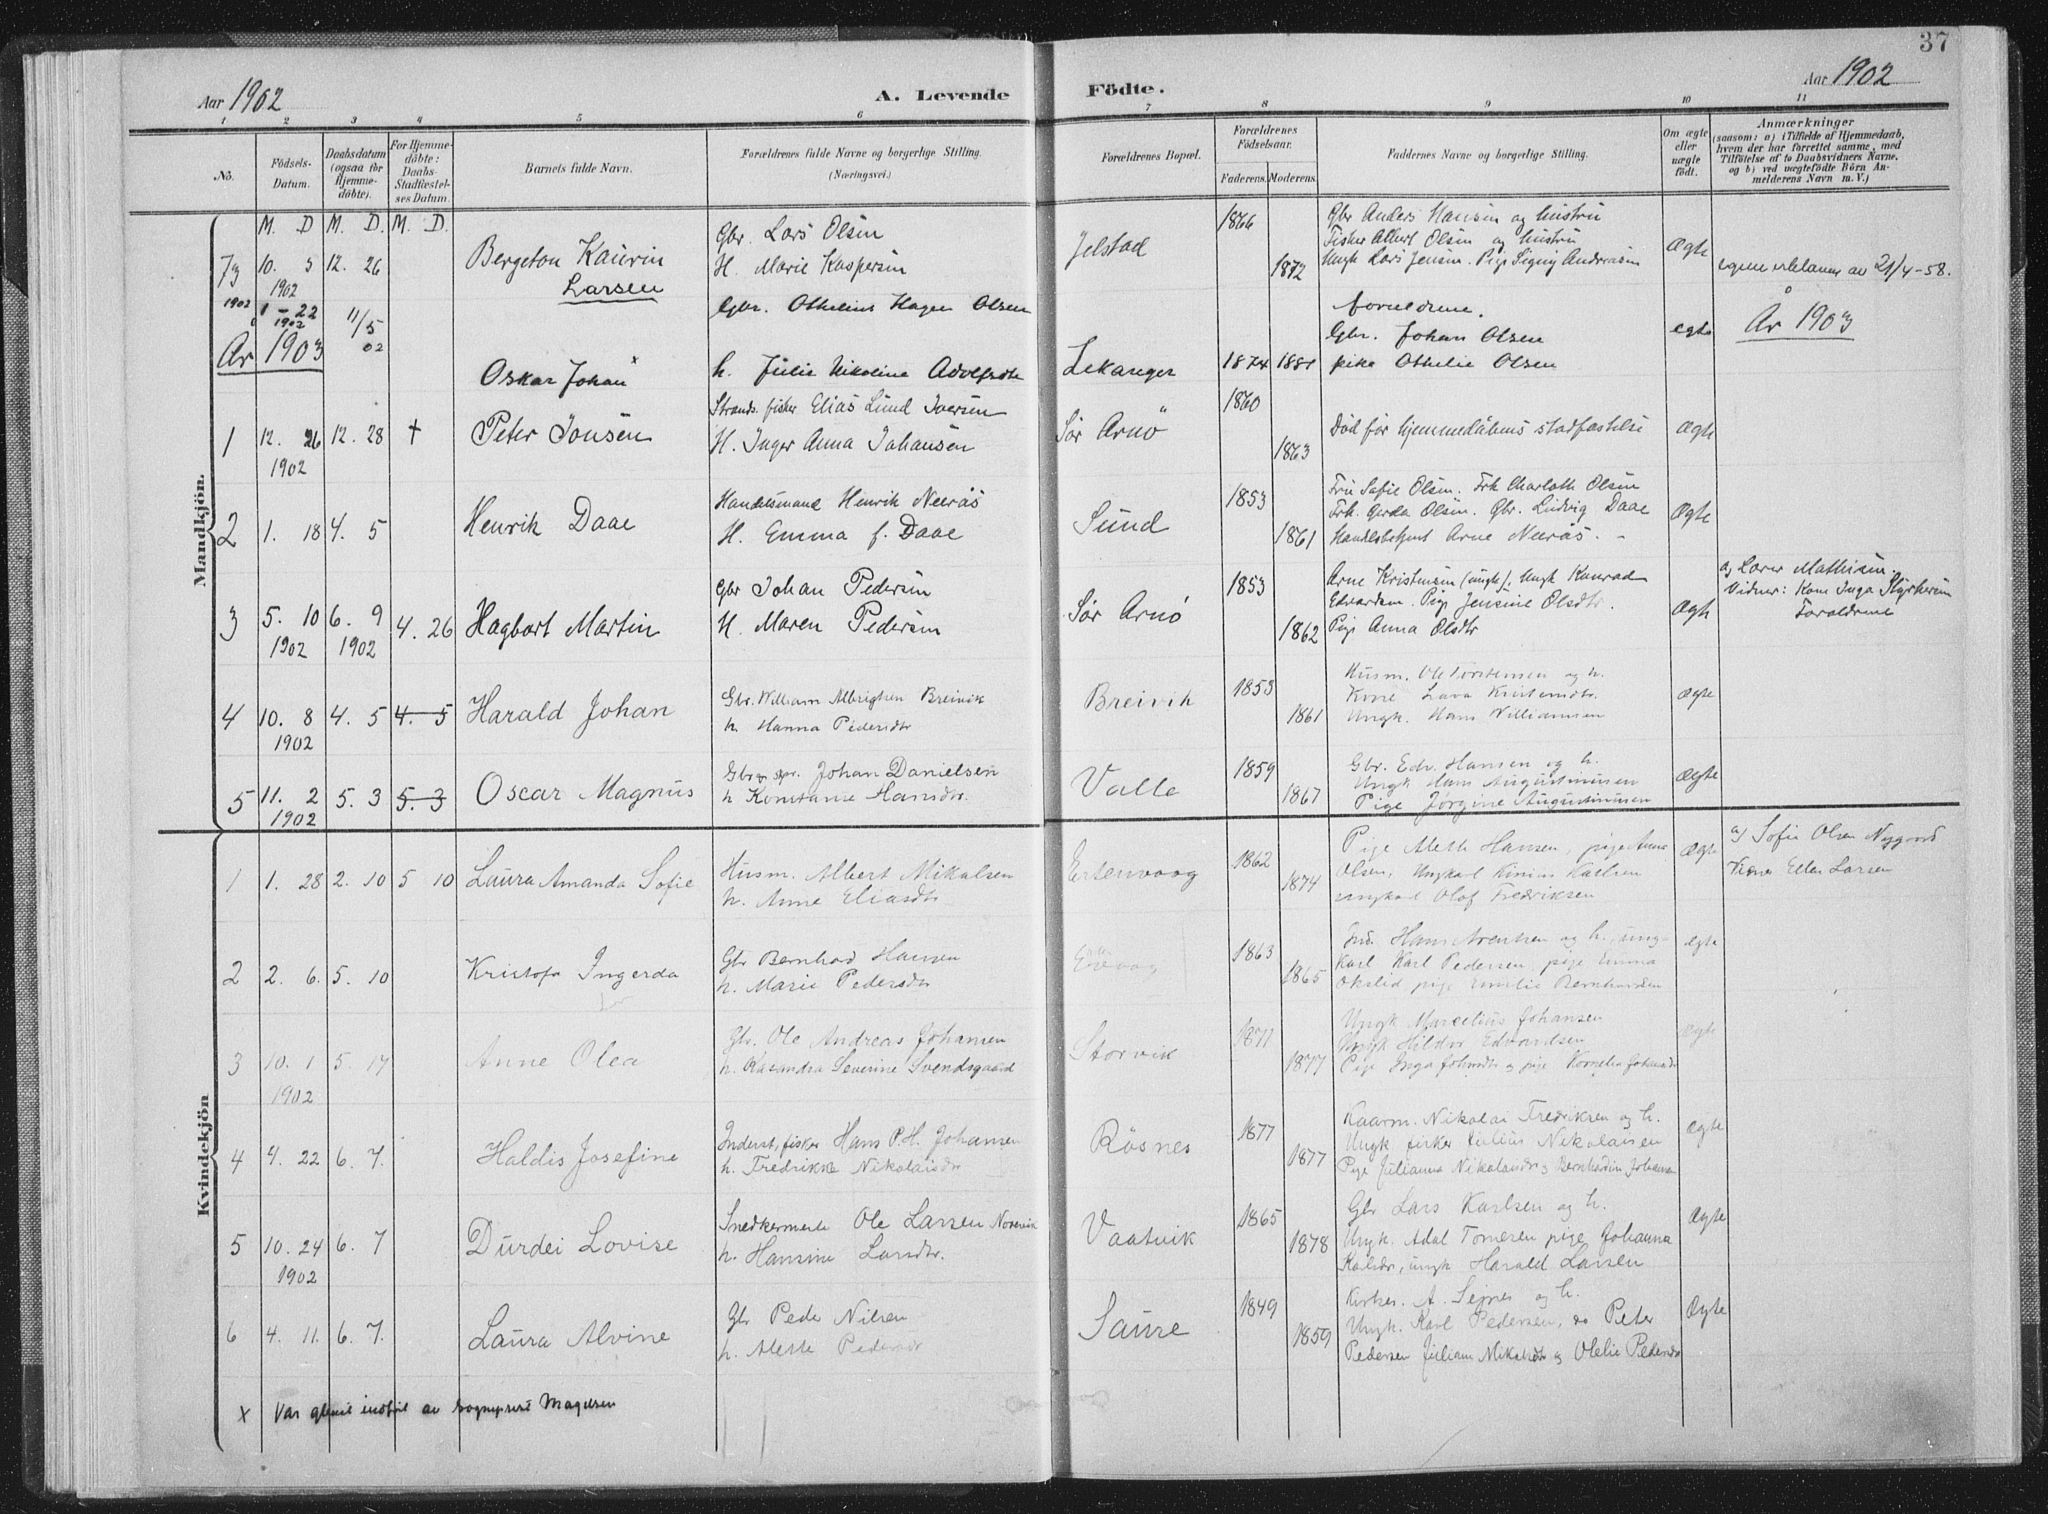 37
Aar 1902
A. Levende Födte.
Aar 1902
1 2 3 4 5 6 7 8 9 10 11
No.
Födsels-Datum.
Daabsdatum (ogsaa for Hjemme-döbte).
For Hjemme-döbte: Daabs-Stadfæstel-ses Datum.
Barnets fulde Navn.
Forældrenes fulde Navne og borgerlige Stilling.
(Næringsvei.)
Forældrenes Bopæl.
Forældrenes Födselsaar.
Faderens. Moderens.
Faddernes Navne og borgerlige Stilling.
Om ægte eller uægte födt.
Anmærkninger
(saasom: a) i Tilfælde af Hjemmedaab, hvem der har forrettet samme, med Tilföielse af to Daabsvidners Navne, og b) ved uægtefödte Börn An-melderens Navn m. V.)
M. D. M. D. M. D.
Mandkjön.
73 10. 5 12. 26 Bergeton Kaurin Larsen
1902 1902
Gbr. Lars Olsen
H. Marie Kaspersen
Jelstad 1866 1872
Gbr Anders Hansen og hustru
Fisker Albert Olsen og hustru
Ungk Lars Jensen. Pige Signy Andreasen
Ægte
21/4-58.
1 - 22 1902 11/5 02
Oskar Johan x
Gbr. Othelius Hagen Olsen
h. Julie Nikoline Adolfsdtr
Lekanger 1874 1881
forældrene.
Gbr. Johan Olsen
pike Othelie Olsen
egte
År 1903
År 1903
1 12. 26 12. 28 † Peter Jonsen
1902
Strands. fisker Elias Lund Iversen
H. Inger Anna Johansen
Sør Arnö 1860 1863
Død før hjemmedåbens stadfæstelse
Ægte
2 1. 18 4. 5 Henrik Daae
Handelsmand Henrik Neerås
H. Emma f. Daae
Sund 1853 1861
Fru Sofie Olsen. Frk Charloth Olsen
Frk. Gerda Olsen. Gbr. Ludvig Daae
Handelsbetjent Arne Neerås. -
Ægte
3 5. 10 6. 9 4. 26 Hagbart Martin
1902 1902
Gbr Johan Pedersen
H. Maren Pedersen
Sør Arnø 1853 1862
Arne Kristensen (ungk). Ungk Konrad
Edvardsen. Pige Jensine Olsdtr.
Pige Anna Olsdtr
Ægte
a) Lærer Mathisen.
Vidner: Kone Inga Styrkersen
Forældrene
4 10. 8 4. 5 4. 5 Harald Johan
1902
Gbr. William Albrigtsen Breivik
h. Hanna Pedersdtr
Breivik 1853 1861
Husm. Ole Torstensen og h.
Kone Lava Kristensdtr.
Ungk. Hans Williamsen
Ægte
5 11. 2 5. 3 5. 3 Oscar Magnus
1902
Gbr og spr. Johan Danielsen
h Konstanse Hansdtr.
Valle 1859 1867
Gbr. Edv. Hansen og h.
Ungk Hans Augustinusen
Pige Jørgine Augustinusen
Ægte
Kvindekjön
1 1. 28 2. 10 5 10 Laura Amanda Sofie
Husm. Albert Mikalsen
h. Anne Eliasdtr
Ertenvaag 1862 1874
Pige Aleth Hansen, pige Anna
Olsen, Ungkarl Kinius Karlsen
ungkarl Olof Fredriksen
Ægte
a) Sofie Olsen Nygaard
Ellen Larsen
2 2. 6. 5. 10 Kristofa Ingerda
Gbr Bernhard Hansen
h. Marie Pedersdtr
1863 1865
Ind. Hans Arentsen og h., ung-
karl Karl Pedersen, pige Emma
Økslid pige Emilie Bernhardsen
egte
3 10. 1 5. 17 Anne Olea
1902
Gbr. Ole Andreas Johansen
h. Kasandra Severine Svendsgaard
Storvik 1871 1877
Ungk Marcelius Johansen
Ungk Hildor Edvardsen
Pige Inga Johansdtr og pige Kornelia Johansdtr
Ægte
4 4. 22 6. 7. Haldis Josefine
Inderst, fisker Hans P. H. Johansen
h. Fredrikke Nikolaisdtr
Røsnes 1877 1877
Kaarm. Nikolai Fredriksen og h.
Ungk fisker Julius Nikolaisen
Pige Julianna Nikolaisdtr og Bernhardin Johansen
Ægte
5 10. 24 6. 7 Durdei Lovise
1902
Snedkermester Ole Larsen
h. Hansine Larsdtr.
Vaatvik 1865 1878
Gbr Lars Karlsen og h.
Ungk. Adal Tomesen pige Johanna
Karlsdtr, ungk Harald Larsen
Ægte
6 4. 11. 6. 7. Laura Alvine
Gbr Peder Nilsen
h. Alette Pedersdtr
Saure 1849 1859
Kirkes. A. Sejnes og h.
Ungk. Karl Pedersen, do Peter
Pedersen Juliann Mikalsdtr og Olelie Pedersdtr
Ægte
x Var glemt indført av sogneprest Magelsen